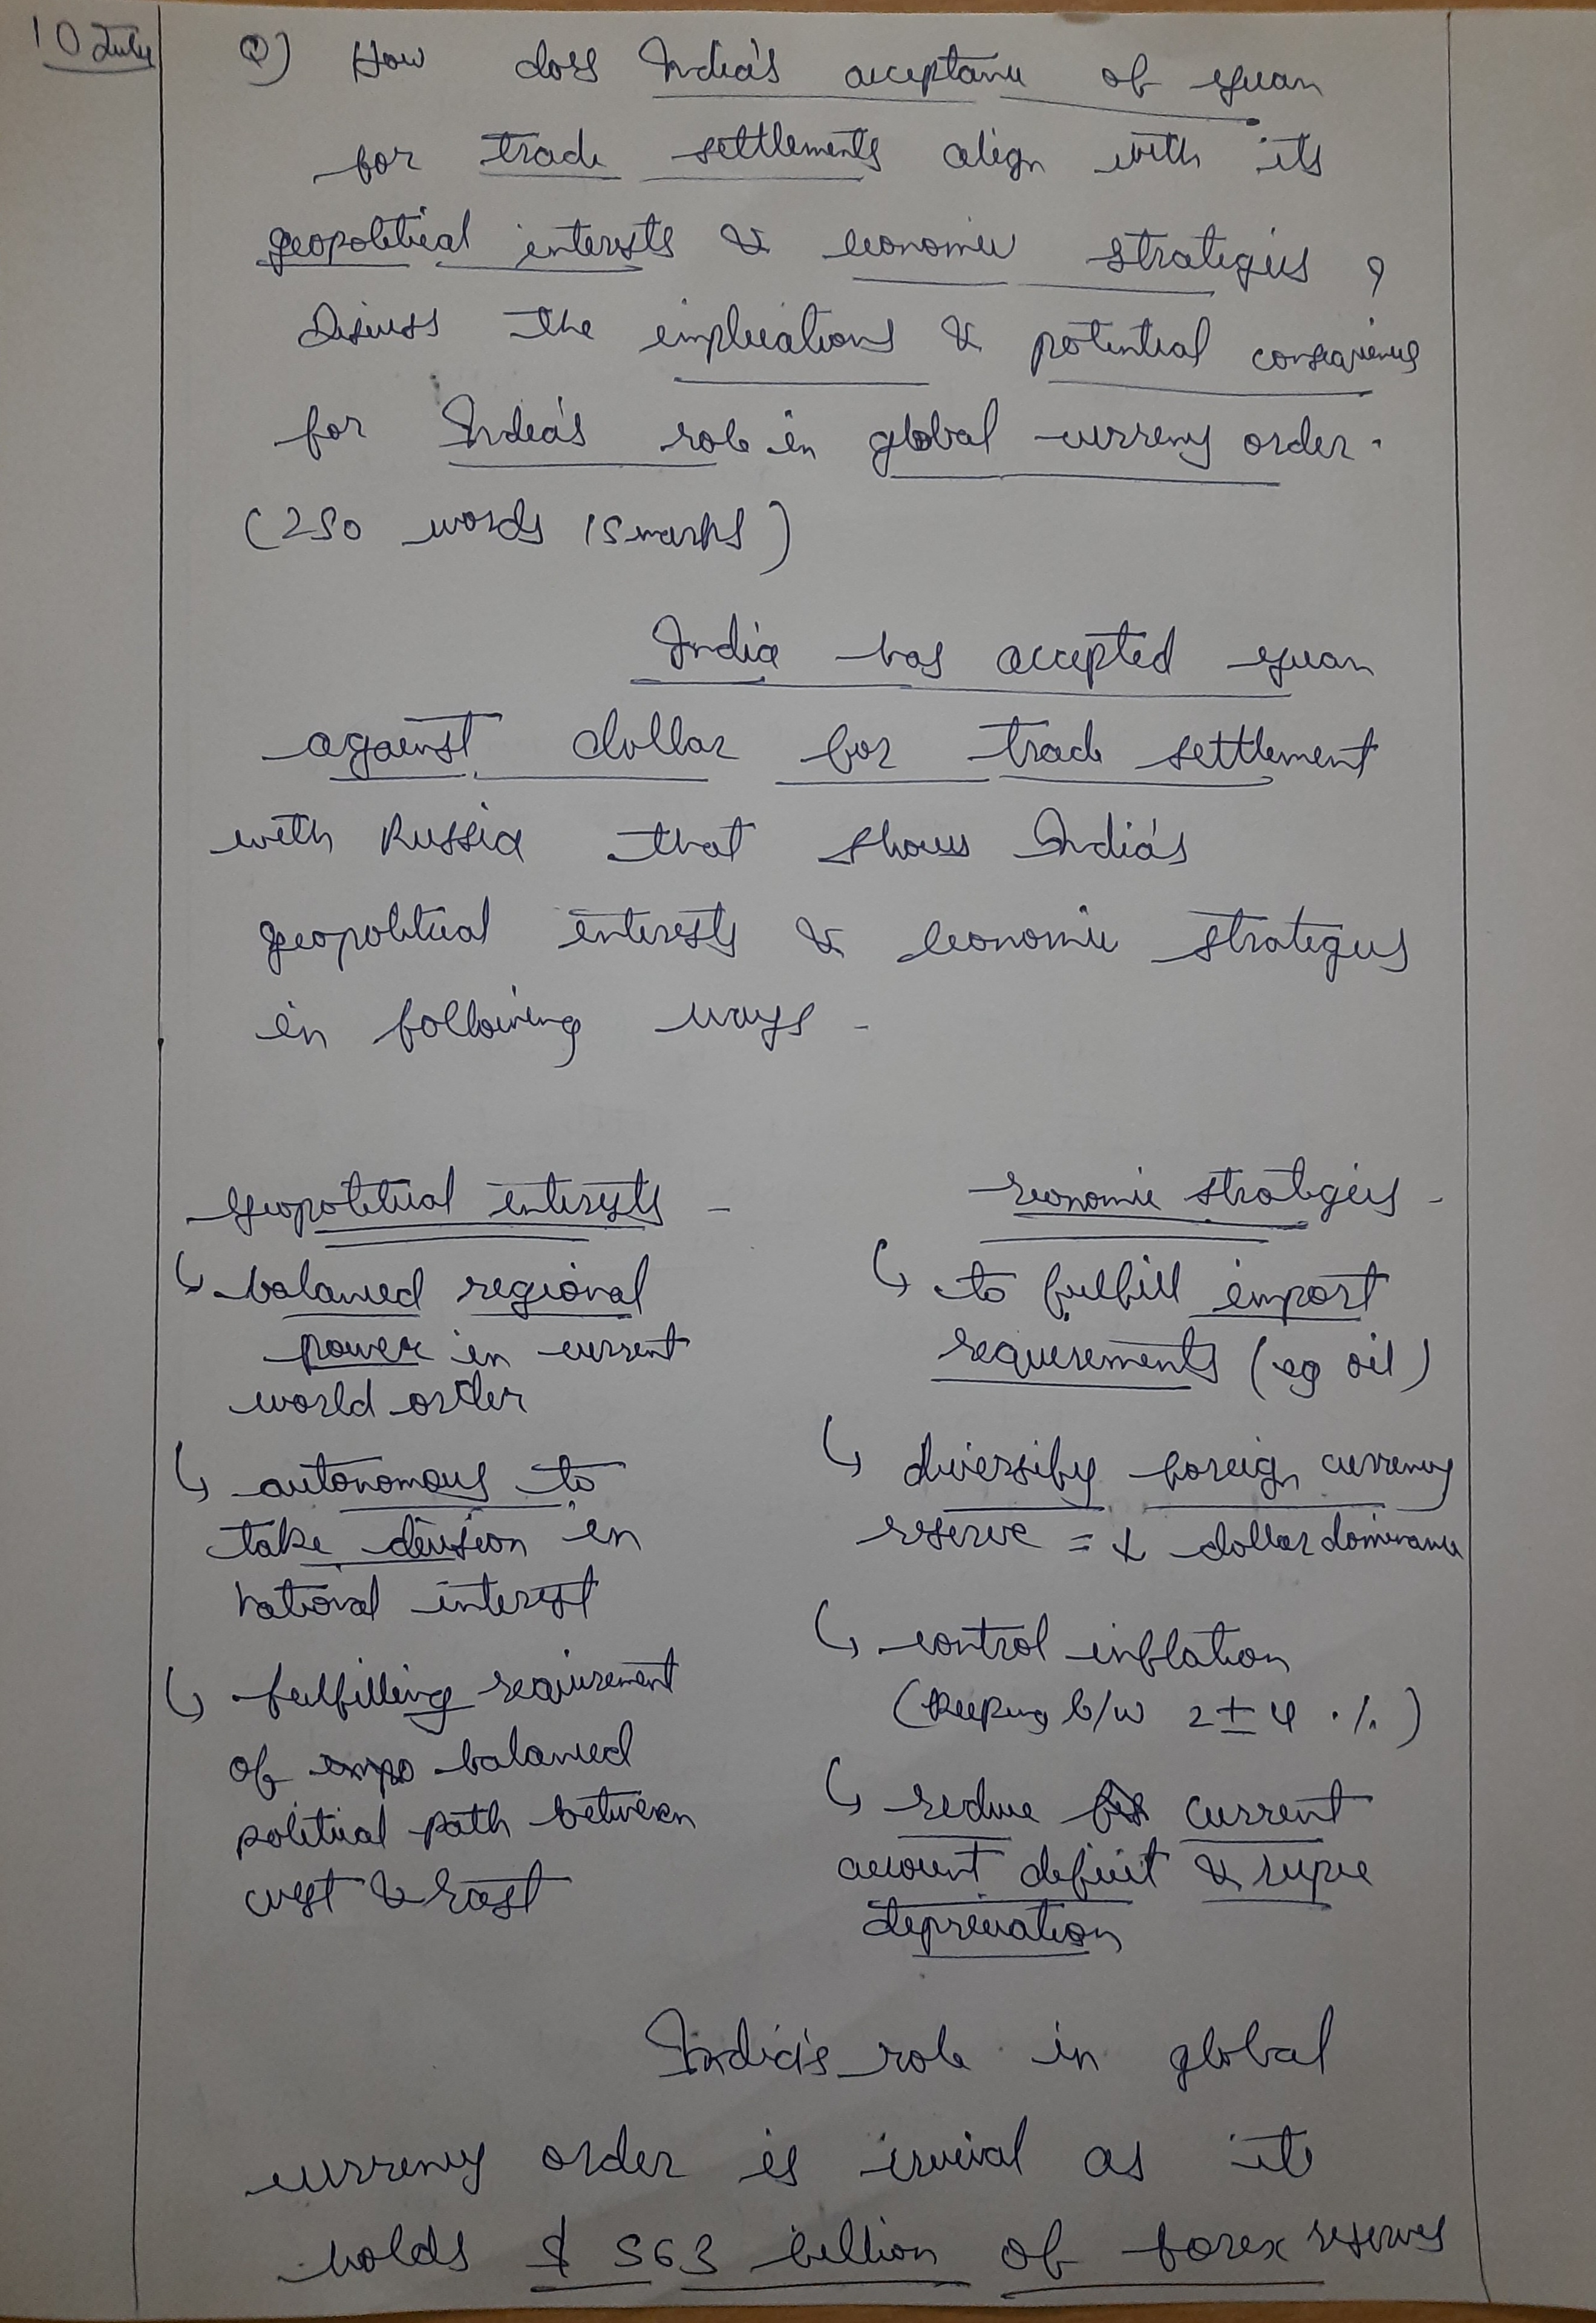 10 July
Q) How does India's acceptance of yuan
for trade settlements align with its
geopolitical interests & economic strategies ?
Discuss the implications & potential consequences
for India's role in global currency order.
(250 words 15 marks)
India has accepted yuan
against dollar for trade settlement
with Russia that shows India's
geopolitical interests & economic strategies
in following ways -
Geopolitical interests -
↳ balanced regional
power in current
world order
↳ autonomous to
take decision in
national interest
↳ fulfilling requirement
of balanced
political path between
west & East
Economic strategies -
↳ to fulfill import
requirements (eg oil)
↳ diversify foreign currency
reserve = ↓ dollar dominance
↳ control inflation
(keeping b/w 2 ± 4 %)
↳ reduce current
account deficit & rupee
depreciation
India's role in global
currency order is crucial as it
holds $ 563 billion of forex reserves